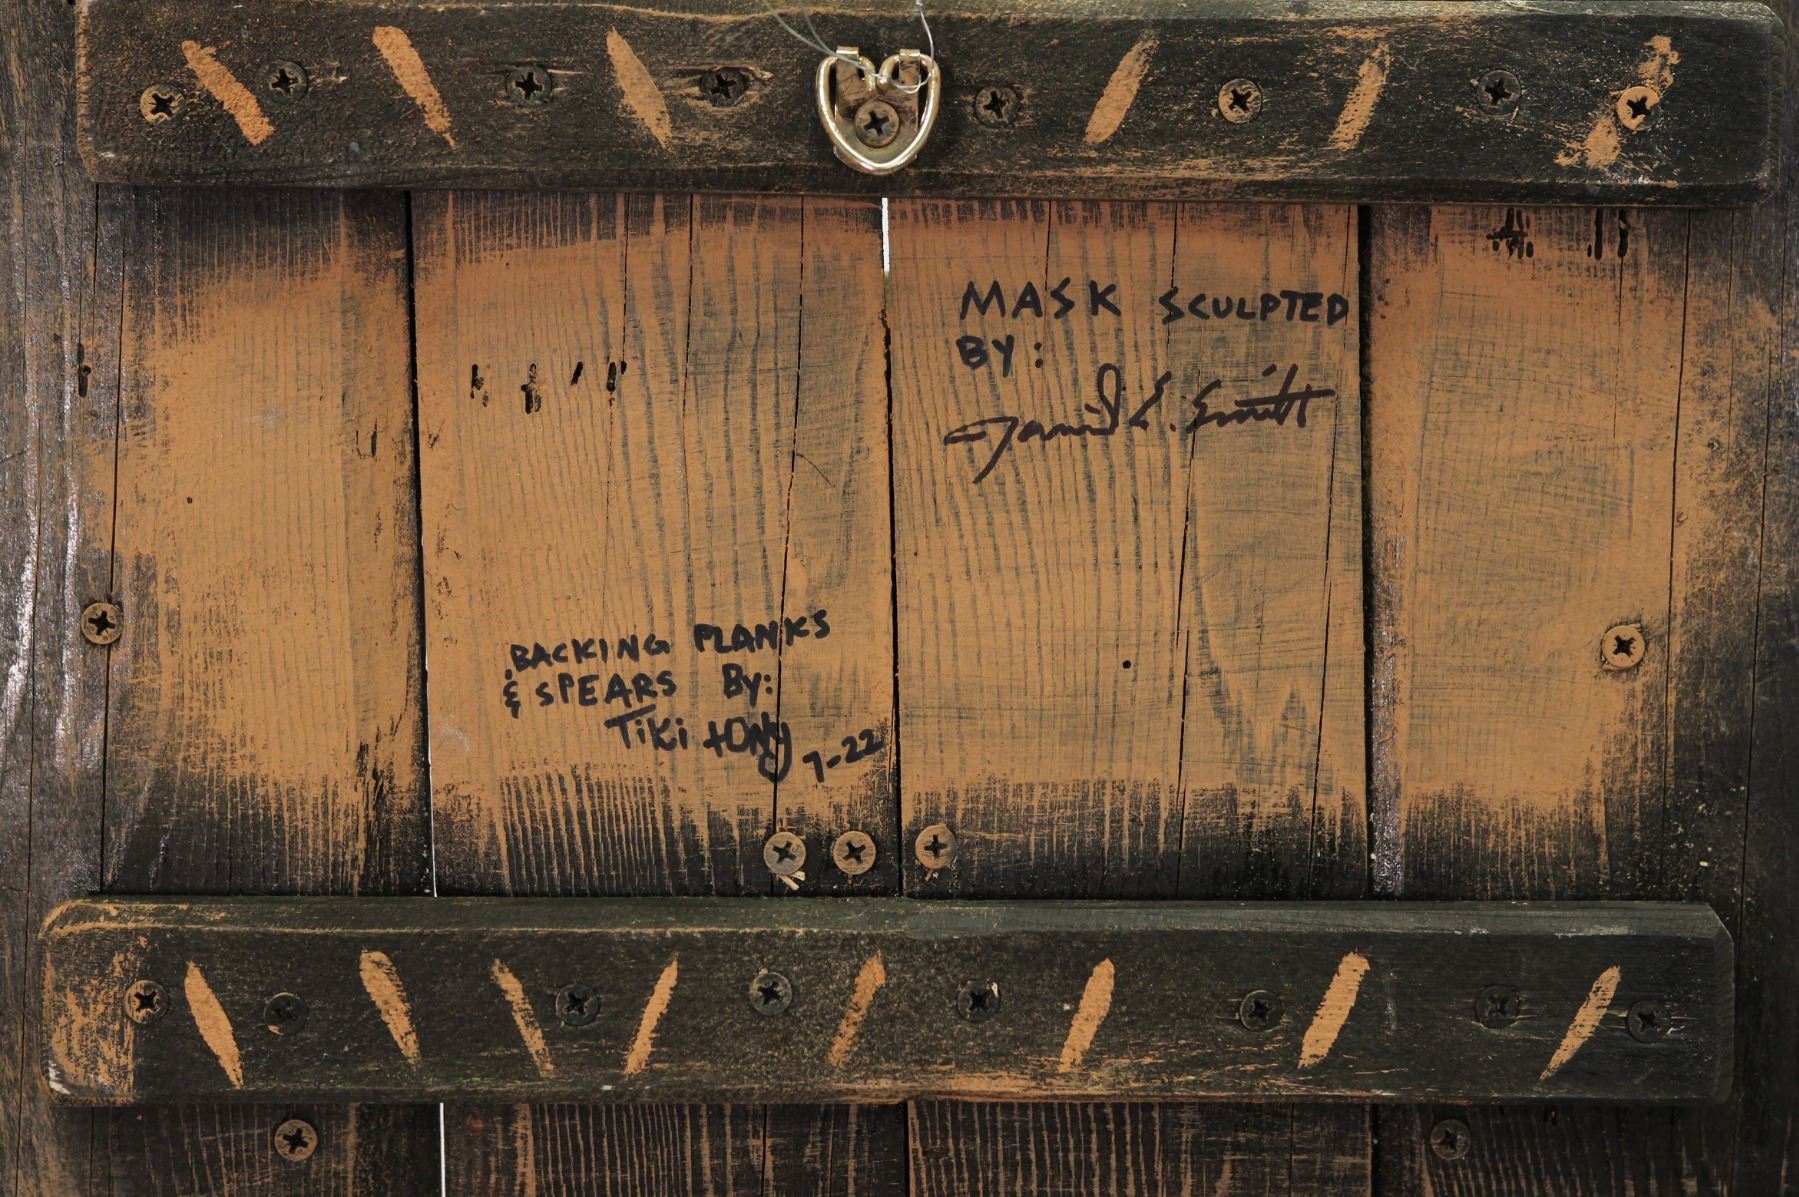 MASK SCULPTED
BY:
BACKING PLANKS
& SPEARS By:
Tiki tony 7-22